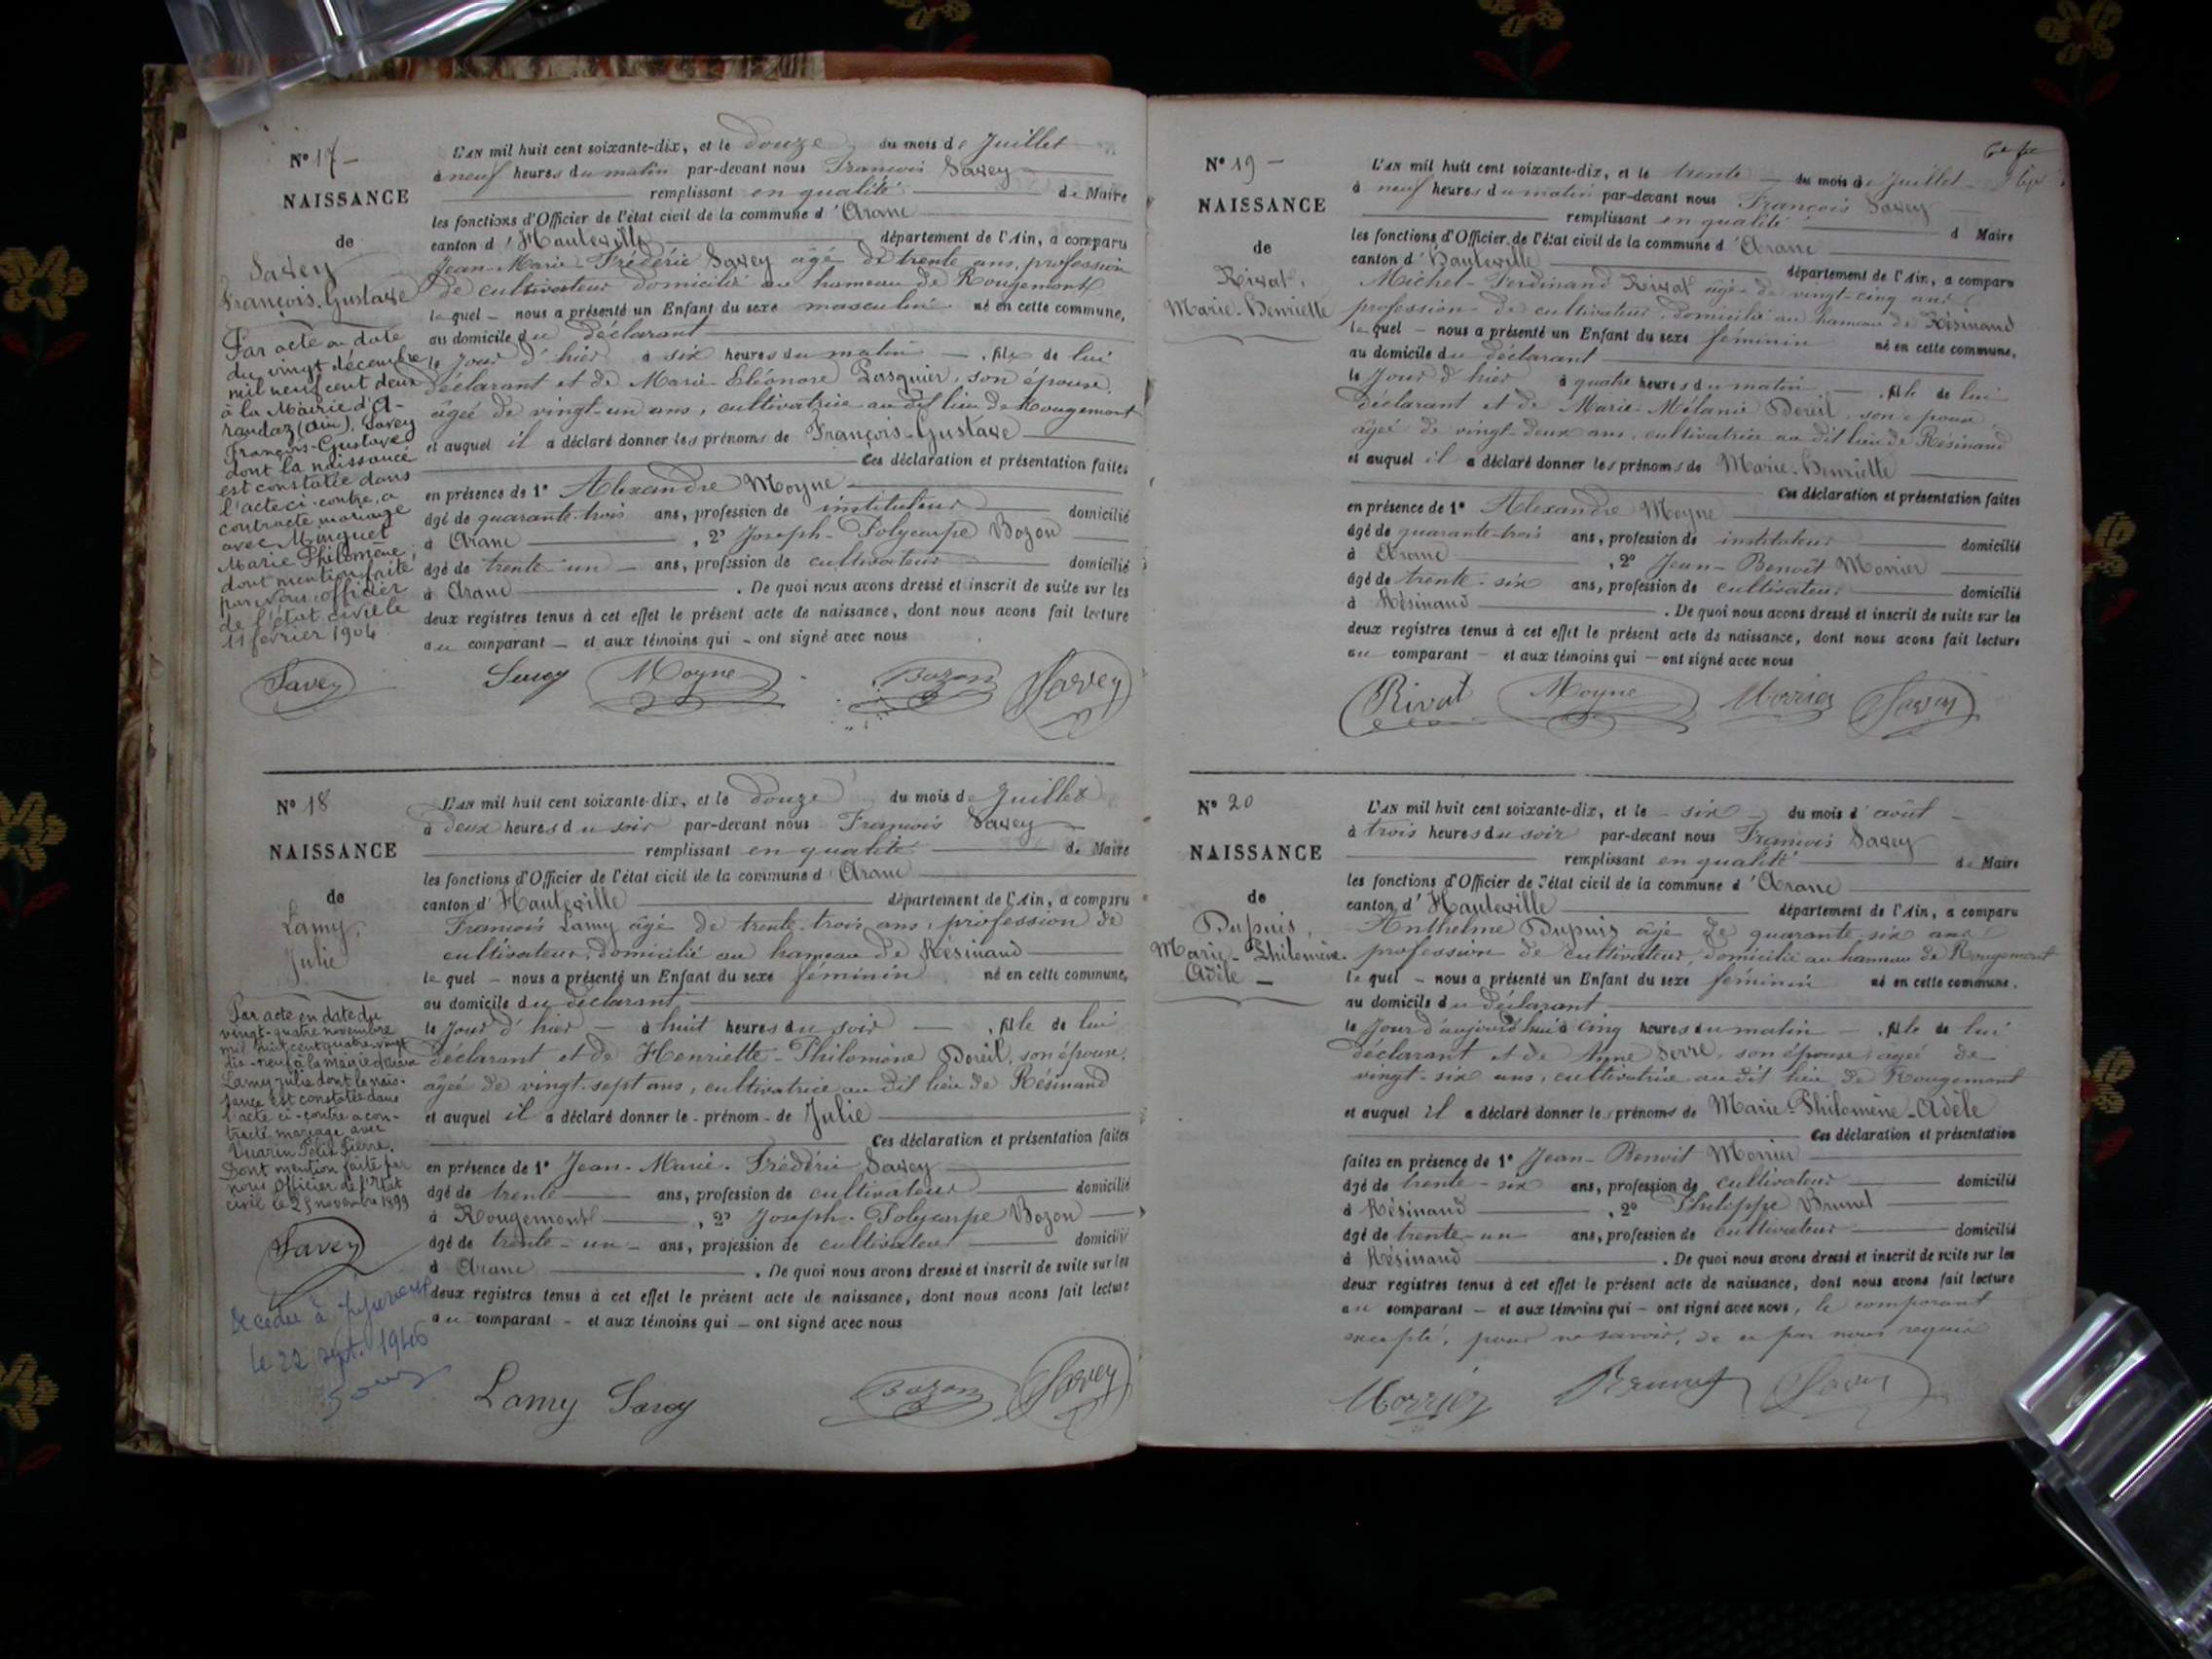 N° 17 –
NAISSANCE
de
Savey
François-Gustave
Par acte en date
du vingt décembre
mil neuf cent deux
à la Mairie d'A-
randaz (Ain), Savey
François-Gustave
dont la naissance
est constatée dans
l'acte ci-contre, a
contracté mariage
avec Minguet
Marie Philomène,
dont mention faite
par nous officier
de l'état civil le
11 février 1904
Savey
L'AN mil huit cent soixante-dix, et le douze du mois de Juillet
à neuf heures du matin par-devant nous François Savey
remplissant en qualité de Maire
les fonctions d'Officier de l'état civil de la commune d'Aranc
canton d'Hauteville département de l'Ain, a comparu
Jean-Marie-Frédéric Savey âgé de trente ans, profession
de cultivateur domicilié au hameau de Rougemont
lequel – nous a présenté un Enfant du sexe masculin né en cette commune,
au domicile du déclarant
le jour d'hier à six heures du matin – , fils de lui
déclarant et de Marie-Eléonore Pasquier, son épouse,
âgée de vingt-un ans, cultivatrice au dit lieu de Rougemont
et auquel il a déclaré donner les prénoms de François-Gustave
Ces déclaration et présentation faites
en présence de 1° Alexandre Moyne
âgé de quarante-trois ans, profession de instituteur domicilié
à Aranc , 2° Joseph-Polycarpe Bozon
âgé de trente-un – ans, profession de cultivateur domicilié
à Aranc . De quoi nous avons dressé et inscrit de suite sur les
deux registres tenus à cet effet le présent acte de naissance, dont nous avons fait lecture
au comparant – et aux témoins qui – ont signé avec nous
Savey Moyne Bozon Savey
N° 18
NAISSANCE
de
Lamy,
Julie
Par acte en date du
vingt-quatre novembre
mil huit cent quatre-vingt
dix-neuf à la mairie d'Aranc
Lamy Julie dont la nais-
sance est constatée dans
l'acte ci-contre a con-
tracté mariage avec
Vuarin Félix Pierre.
Dont mention faite par
nous Officier de l'Etat
civil le 25 novembre 1899
Savey
Décédée à Jujurieux
le 22 sept. 1946
L'AN mil huit cent soixante-dix, et le douze du mois de Juillet
à deux heures du soir par-devant nous François Savey
remplissant en qualité de Maire
les fonctions d'Officier de l'état civil de la commune d'Aranc
canton d'Hauteville département de l'Ain, a comparu
François Lamy âgé de trente-trois ans, profession de
cultivateur, domicilié au hameau de Résinand
lequel – nous a présenté un Enfant du sexe féminin né en cette commune,
au domicile du déclarant
le jour d'hier – à huit heures du soir – , fille de lui
déclarant et de Henriette-Philomène Doreil, son épouse,
âgée de vingt-sept ans, cultivatrice au dit lieu de Résinand
et auquel il a déclaré donner le - prénom - de Julie
Ces déclaration et présentation faites
en présence de 1° Jean-Marie-Frédéric Savey
âgé de trente ans, profession de cultivateur domicilié
à Rougemont , 2° Joseph-Polycarpe Bozon
âgé de trente-un – ans, profession de cultivateur domicilié
à Aranc . De quoi nous avons dressé et inscrit de suite sur les
deux registres tenus à cet effet le présent acte de naissance, dont nous avons fait lecture
au comparant - et aux témoins qui – ont signé avec nous
Lamy Savey Bozon Savey
N° 19 –
NAISSANCE
de
Rivat,
Marie-Henriette
L'AN mil huit cent soixante-dix, et le trente – du mois de Juillet
à neuf heures du matin par-devant nous François Savey
remplissant en qualité d Maire
les fonctions d'Officier de l'état civil de la commune d'Aranc
canton d'Hauteville département de l'Ain, a comparu
Michel-Ferdinand Rivat âgé de vingt-cinq ans
profession de cultivateur, domicilié au hameau de Résinand
lequel – nous a présenté un Enfant du sexe féminin né en cette commune,
au domicile du déclarant
le jour d'hier à quatre heures du matin – , fille de lui
déclarant et de Marie-Mélanie Doreil, son épouse,
âgée de vingt-deux ans, cultivatrice au dit lieu de Résinand
et auquel il a déclaré donner les prénoms de Marie-Henriette
Ces déclaration et présentation faites
en présence de 1° Alexandre Moyne
âgé de quarante-trois ans, profession de instituteur domicilié
à Aranc , 2° Jean-Benoît Morrier
âgé de trente-six ans, profession de cultivateur domicilié
à Résinand . De quoi nous avons dressé et inscrit de suite sur les
deux registres tenus à cet effet le présent acte de naissance, dont nous avons fait lecture
au comparant – et aux témoins qui – ont signé avec nous
Rivat Moyne Morrier Savey
N° 20
NAISSANCE
de
Dupuis,
Marie-Philomène-
Adèle –
L'AN mil huit cent soixante-dix, et le – six – du mois d'août –
à trois heures du soir par-devant nous François Savey
remplissant en qualité de Maire
les fonctions d'Officier de l'état civil de la commune d'Aranc
canton d'Hauteville département de l'Ain, a comparu
Anthelme Dupuis âgé de quarante-six ans
profession de cultivateur, domicilié au hameau de Rougemont
lequel – nous a présenté un Enfant du sexe féminin né en cette commune,
au domicile du déclarant
le jour d'aujourd'hui à cinq heures du matin – , fille de lui
déclarant et de Anne Serre, son épouse, âgée de
vingt-six ans, cultivatrice au dit lieu de Rougemont
et auquel il a déclaré donner les prénoms de Marie-Philomène-Adèle
Ces déclaration et présentation
faites en présence de 1° Jean-Benoît Morrier
âgé de trente-six ans, profession de cultivateur domicilié
à Résinand , 2° Philippe Brunet
âgé de trente-un ans, profession de cultivateur domicilié
à Résinand . De quoi nous avons dressé et inscrit de suite sur les
deux registres tenus à cet effet le présent acte de naissance, dont nous avons fait lecture
au comparant – et aux témoins qui – ont signé avec nous, le comparant
excepté, pour ne savoir, de ce par nous requis
Morrier Brunet Savey